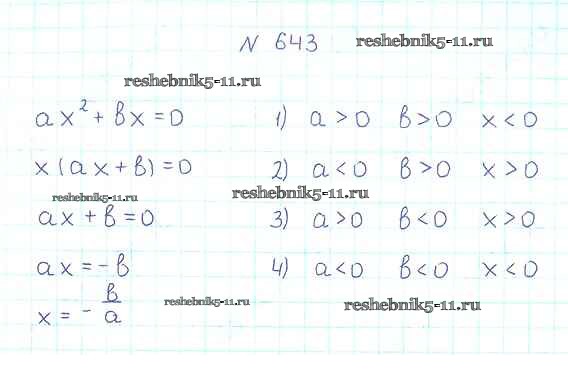 N 643 reshebnik5-11.ru
reshebnik5-11.ru
ax² + bx = 0 1) a > 0 b > 0 x < 0
x (ax + b) = 0 2) a < 0 b > 0 x > 0
reshebnik5-11.ru reshebnik5-11.ru
ax + b = 0 3) a > 0 b < 0 x > 0
ax = - b 4) a < 0 b < 0 x < 0
x = - b/a reshebnik5-11.ru reshebnik5-11.ru